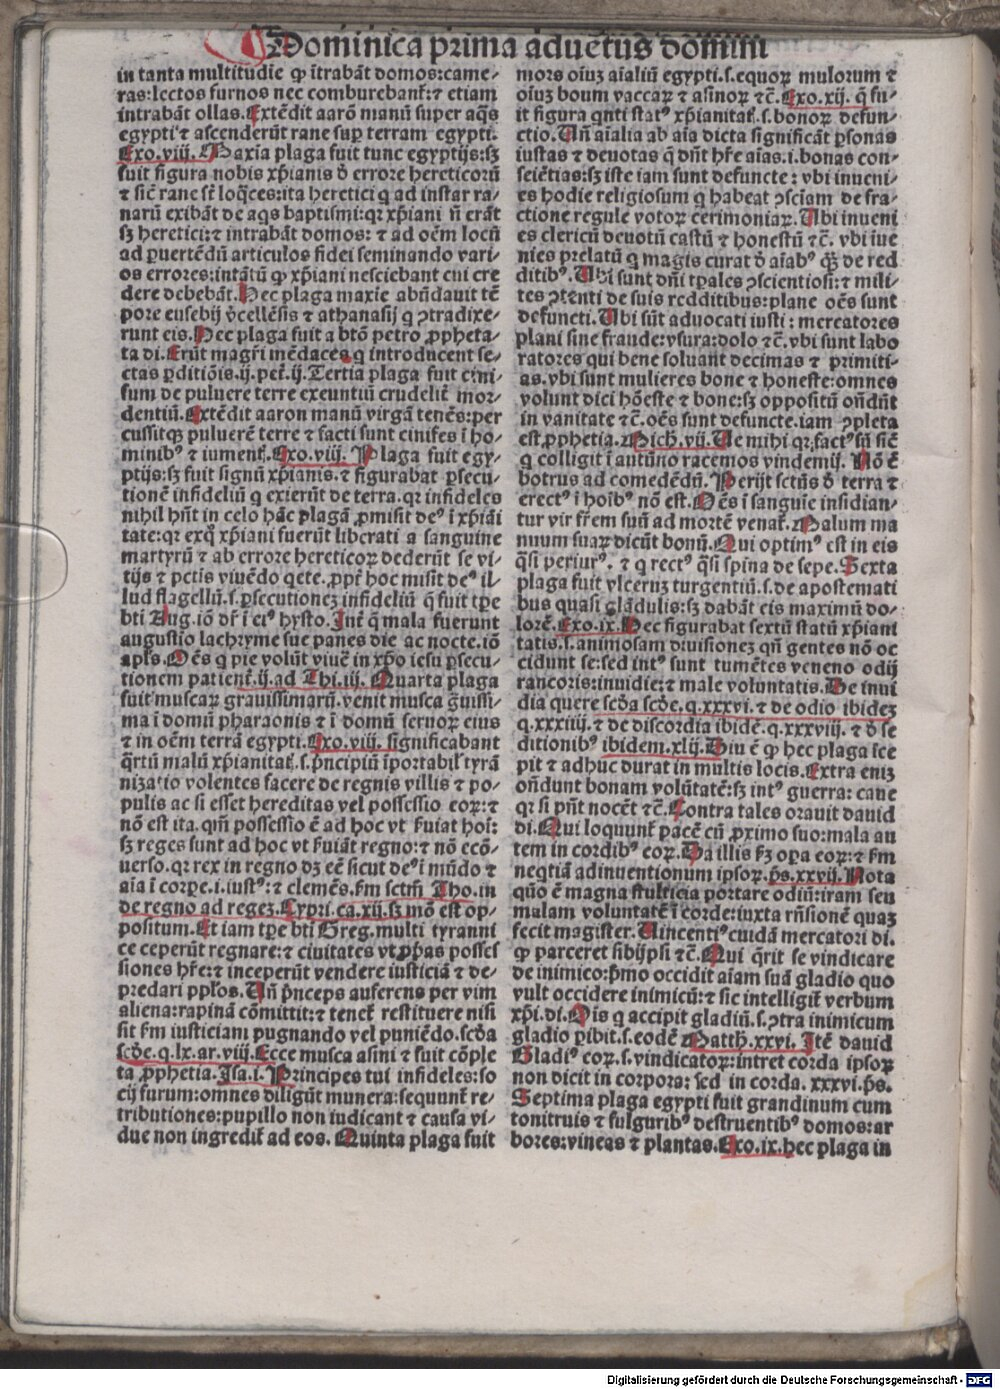 Dominica prima aduẽtus domini
in tanta multitudĩe ꝙ ĩtrabãt domos:came⸗
ras:lectos furnos nec comburebanť:⁊ etiam
intrabãt ollas.Extẽdit aarõ manũ super aq̃s
egypti ⁊ ascenderũt rane suꝑ terram egypti.
Exo.viij. Maxĩa plaga fuit tunc egyptijs:sꝫ
fuit figura nobis xp̃ianis ď errore hereticorũ
⁊ sic̃ rane sũt loq̃ces:ita heretici q ad instar ra⸗
narũ exibãt de aq̃s baptismi:qꝛ xp̃iani ñ erãt
sꝫ heretici:⁊ intrabãt domos: ⁊ ad oẽm locũ
ad ꝑuertẽdũ articulos fidei seminando vari⸗
os errores:intãtũ ꝙ xp̃iani nesciebant cui cre
dere debebãt.Hec plaga maxie abũdauit tẽ
pore eusebij v̓cellẽsis ⁊ athanasij q ꝯtradixe⸗
runt eis.Hec plaga fuit a btõ petro ꝓpheta⸗
ta di.Erũt magr̃i mẽdaces q introducent se⸗
ctas ꝑditiõis.ij.peť.ij.Tertia plaga fuit cini⸗
fum de puluere terre exeuntiũ crudeliť mor⸗
dentiũ.Extẽdit aaron manũ virgã tenẽs:per
cussitqꝫ puluerẽ terre ⁊ facti sunt cinifes ĩ ho⸗
minibꝰ ⁊ iumenť.Exo.viij. Plaga fuit egy⸗
ptijs:sꝫ fuit signũ xp̃ianis.⁊ figurabat ꝑsecu⸗
tionẽ infideliũ q exierũt de terra.qꝛ infideles
nihil hñt in celo hãc plagã ꝓmisit deꝰ ĩ xp̃iãi
tate:qꝛ exq̊ xp̃iani fuerũt liberati a sanguine
martyrũ ⁊ ab errore hereticoꝝ dederũt se vi⸗
tijs ⁊ pctis viuẽdo qete.ꝓpť hoc misit deꝰ il⸗
lud flagellũ.s.ꝑsecutionez infideliũ q̃ fuit tꝑe
bti Aug.iõ dř ĩ eiꝰ hysto.Inť q̃ mala fuerunt
augustĩo lachryme sue panes die ac nocte.iõ
apl̃s.Oẽs q pie volũt viuẽ in xp̃o iesu ꝑsecu⸗
tionem patienť.ij.ad Thi.iij. Quarta plaga
fuit muscaꝝ grauissimarũ.venit musca g̃uissi⸗
ma ĩ domũ pharaonis ⁊ ĩ domũ seruoꝝ eius
⁊ in oẽm terrã egypti.Exo.viij. significabant
q̃rtũ malũ xp̃ianitať.s.p̃ncipiũ ĩportabil̃ tyrã
nizatio volentes facere de regnis villis ⁊ po⸗
pulis ac si esset hereditas vel possessio eoꝝ:⁊
nõ est ita.qm̃ possessio ẽ ad hoc vt ẜuiat hoĩ:
sꝫ reges sunt ad hoc vt ẜuiãt regno:⁊ nõ ecõ⸗
uerso.qꝛ rex in regno dꝫ eẽ sicut deꝰ ĩ mũdo ⁊
aĩa ĩ corꝑe.i.iustꝰ:⁊ clemẽs.ẜm sctm̃ Tho.in
de regno ad regez.Cypri.ca.xij.sꝫ mõ est op⸗
positum.Et iam tꝑe bti Greg.multi tyranni
ce ceperũt regnare:⁊ ciuitates vt ꝓp̃as posses
siones hr̃e:⁊ inceperũt vendere iusticiã ⁊ de⸗
predari pp̃l̃os.Uñ p̃nceps auferens per vim
aliena:rapinã cõmittit:⁊ teneť restituere nisi
sit ẜm iusticiam pugnando vel puniẽdo.scďa
scďe.q.lx.ar.viij.Ecce musca asini ⁊ fuit cõple
ta ꝓphetia.Isa.i. Principes tui infideles:so
cij furum:omnes diligũt munera:sequunť re⸗
tributiones:pupillo non iudicant ⁊ causa vi⸗
due non ingrediť ad eos. Quinta plaga fuit
mors oĩuz aĩaliũ egypti.s.equoꝝ mulorum ⁊
oĩuz boum vaccaꝝ ⁊ asinoꝝ ⁊c̃.Exo.xij. q̃ fu⸗
it figura qnti statꝰ xp̃ianitať.s.bonoꝝ defun⸗
ctio.Uñ aĩalia ab aĩa dicta significãt ꝑsonas
iustas ⁊ deuotas q dñt hr̃e aĩas.i.bonas con⸗
sciẽtias:sꝫ iste iam sunt defuncte: vbi inueni⸗
es hodie religiosum q habeat ꝯsciam de fra⸗
ctione regule votoꝝ cerimoniaꝝ.Ubi inueni
es clericũ deuotũ castũ ⁊ honestũ ⁊c̃. vbi ĩue
nies prelatũ q magis curat ď aĩabꝰ q̃ꝫ de red
ditibꝰ.Ubi sunt dñi tꝑales ꝯscientiosi:⁊ mili⸗
tes ꝯtenti de suis redditibus:plane oẽs sunt
defuncti.Ubi sũt aduocati iusti: mercatores
plani sine fraude:vsura:dolo ⁊c̃.vbi sunt labo
ratores qui bene soluant decimas ⁊ primiti⸗
as.vbi sunt mulieres bone ⁊ honeste:omnes
volunt dici hõeste ⁊ bone:sꝫ oppositũ oñdũt
in vanitate ⁊c̃.oẽs sunt defuncte.iam ꝯpleta
est ꝓphetia.Mich̃.vij.Ue mihi qꝛ factꝰ sũ sic̃
q colligit ĩ autũno racemos vindemij. Nõ ẽ
botrus ad comedẽdũ.Perijt sctũs ď terra ⁊
erectꝰ ĩ hoĩbꝰ nõ est.Oẽs ĩ sanguĩe insidian⸗
tur vir fr̃em suũ ad mortẽ venať.Malum ma
nuum suaꝝ dicũt bonũ.Qui optimꝰ est in eis
q̃si periurꝰ. ⁊ q rectꝰ q̃si spina de sepe.Sexta
plaga fuit vlceruz turgentiũ.s.de apostemati
bus quasi glãdulis:sꝫ dabãt eis maximũ do⸗
lorẽ.Exo.ix.Hec figurabat sextũ statũ xp̃iani
tatis.s.animosam diuisionez qñ gentes nõ oc
cidunt se:sed intꝰ sunt tumẽtes veneno odij
rancoris:inuidie:⁊ male voluntatis.De inui
dia quere scďa scďe.q.xxxvi.⁊ de odio ibidez
q.xxxiiij.⁊ de discordia ibidẽ.q.xxxviij. ⁊ ď se
ditionibꝰ ibidem.xlij.Diu ẽ ꝙ hec plaga ĩce
pit ⁊ adhuc durat in multis locis.Extra eniz
oñdunt bonam volũtatẽ:sꝫ intꝰ guerra: caue
qꝛ si pñt nocẽt ⁊c̃.Contra tales orauit dauid
di.Qui loquunť pacẽ cũ ꝓximo suo:mala au
tem in cordibꝰ eoꝝ.Da illis ẜꝫ oꝑa eoꝝ:⁊ ẜm
neq̃tiã adinuentionum ipsoꝝ.ps.xxvij.Nota
quõ ẽ magna stulticia portare odiũ:iram seu
malam voluntatẽ ĩ corde:iuxta rñsionẽ quaz
fecit magister.Uincentiꝰ cuidã mercatori di.
ꝙ parceret sibijpsi ⁊c̃.Qui q̃rit se vindicare
de inimico:p̃mo occidit aĩam suã gladio quo
vult occidere inimicũ:⁊ sic intelligiť verbum
xp̃i.di.Ois q accipit gladiũ.s.ꝯtra inimicum
gladio ꝑibit.s.eodẽ Matth̃.xxvi. Itẽ dauid
Gladiꝰ eoꝝ.s.vindicatoꝝ:intret corda ipsoꝝ
non dicit in corpora: sed in corda. xxxvi.p̃s.
Septima plaga egypti fuit grandinum cum
tonitruis ⁊ fulguribꝰ destruentibꝰ domos:ar
bores:vineas ⁊ plantas.Exo.ix.hec plaga in
Digitalisierung gefördert durch die Deutsche Forschungsgemeinschaft - DFG